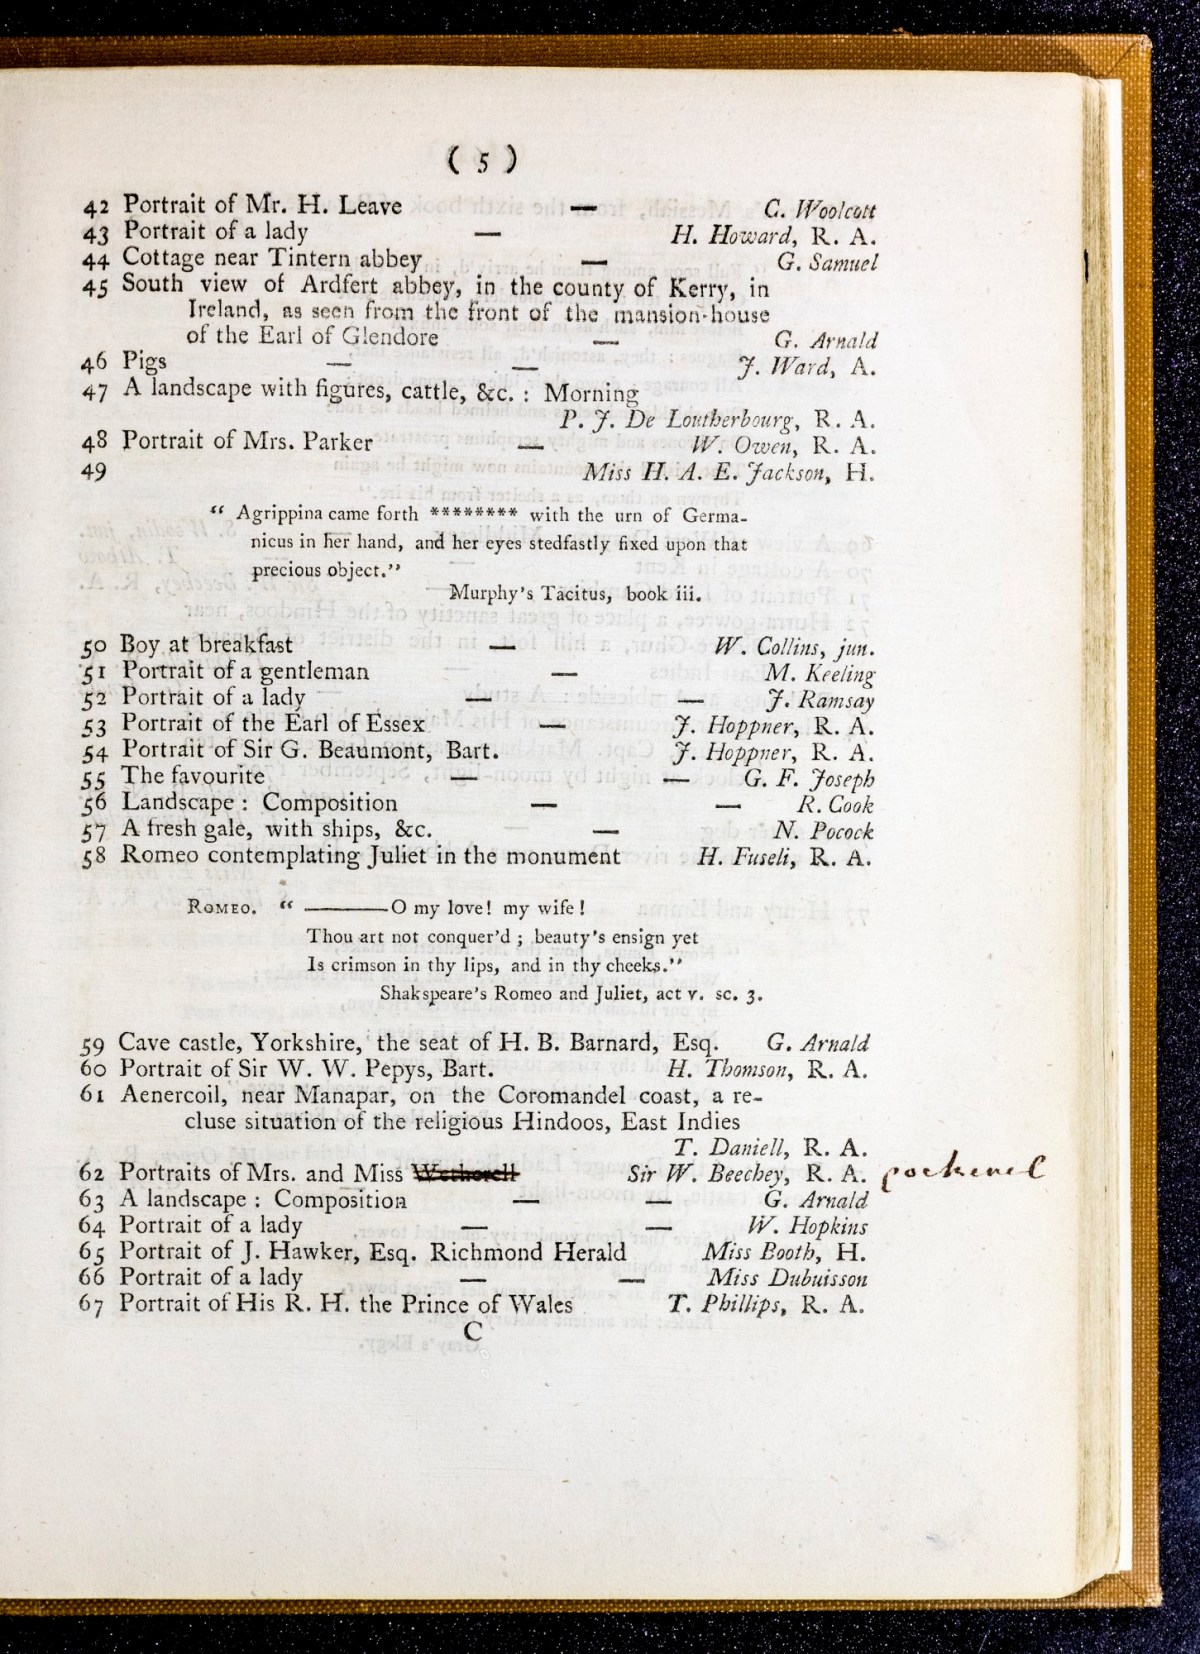 ( 5 )
42 Portrait of Mr. H. Leave — C. Woolcott
43 Portrait of a lady — H. Howard, R. A.
44 Cottage near Tintern abbey — G. Samuel
45 South view of Ardfert abbey, in the county of Kerry, in
Ireland, as seen from the front of the mansion-house
of the Earl of Glendore — G. Arnald
46 Pigs — — J. Ward, A.
47 A landscape with figures, cattle, &c. : Morning
P. J. De Loutherbourg, R. A.
48 Portrait of Mrs. Parker — W. Owen, R. A.
49 Miss H. A. E. Jackson, H.
“ Agrippina came forth ******** with the urn of Germa-
nicus in her hand, and her eyes stedfastly fixed upon that
precious object.”
Murphy's Tacitus, book iii.
50 Boy at breakfast — W. Collins, jun.
51 Portrait of a gentleman — M. Keeling
52 Portrait of a lady — — J. Ramsay
53 Portrait of the Earl of Essex — J. Hoppner, R. A.
54 Portrait of Sir G. Beaumont, Bart. J. Hoppner, R. A.
55 The favourite — — G. F. Joseph
56 Landscape : Composition — — R. Cook
57 A fresh gale, with ships, &c. — N. Pocock
58 Romeo contemplating Juliet in the monument H. Fuseli, R. A.
ROMEO. “ ———O my love! my wife !
Thou art not conquer'd ; beauty's ensign yet
Is crimson in thy lips, and in thy cheeks.”
Shakspeare's Romeo and Juliet, act v. sc. 3.
59 Cave castle, Yorkshire, the seat of H. B. Barnard, Esq. G. Arnald
60 Portrait of Sir W. W. Pepys, Bart. H. Thomson, R. A.
61 Aenercoil, near Manapar, on the Coromandel coast, a re-
cluse situation of the religious Hindoos, East Indies
T. Daniell, R. A.
62 Portraits of Mrs. and Miss Wetherell Sir W. Beechey, R. A.
63 A landscape : Composition — — G. Arnald
64 Portrait of a lady — — W. Hopkins
65 Portrait of J. Hawker, Esq. Richmond Herald Miss Booth, H.
66 Portrait of a lady — — Miss Dubuisson
67 Portrait of His R. H. the Prince of Wales T. Phillips, R. A.
C